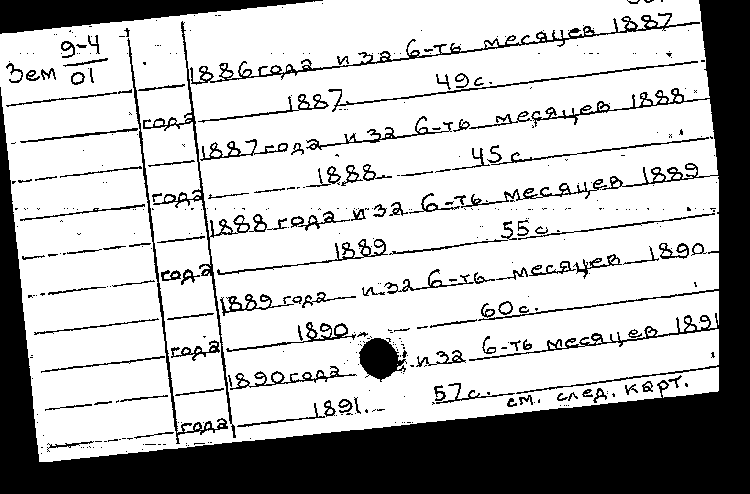 Зем 9-4
01
1886 года и за 6-ть месяцев 1887
года 1887. 49 с.
1887 года и за 6-ть месяцев 1888
года 1888. 45 с.
1888 года и за 6-ть месяцев 1889
года 1889. 55 с.
1889 года и за 6-ть месяцев 1890
года 1890. 60 с.
1890 года и за 6-ть месяцев 1891
года 1891. 57 с.
см. след. карт.